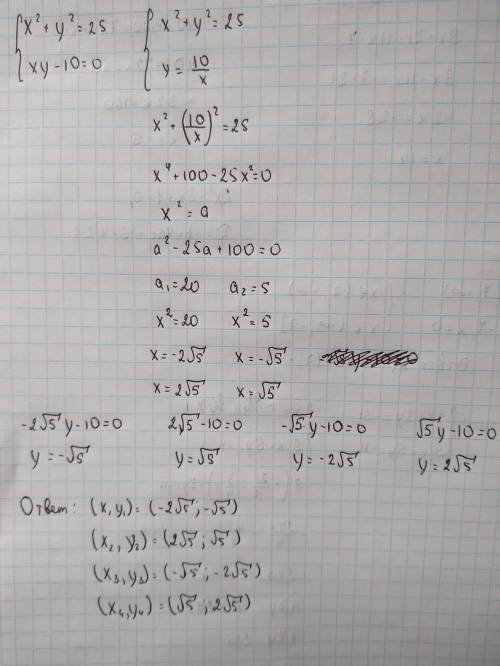 x² + y² = 25    x² + y² = 25
xy - 10 = 0    y = 10/x
x² + (10/x)² = 25
x⁴ + 100 - 25x² = 0
x² = a
a² - 25a + 100 = 0
a₁ = 20    a₂ = 5
x² = 20    x² = 5
x = -2√5    x = -√5
x = 2√5    x = √5
-2√5 y - 10 = 0    2√5 - 10 = 0    -√5 y - 10 = 0    √5 y - 10 = 0
y = -√5    y = √5    y = -2√5    y = 2√5
Ответ: (x, y₁) = (-2√5; -√5)
(x₂, y₂) = (2√5; √5)
(x₃, y₃) = (-√5; -2√5)
(x₄, y₄) = (√5; 2√5)